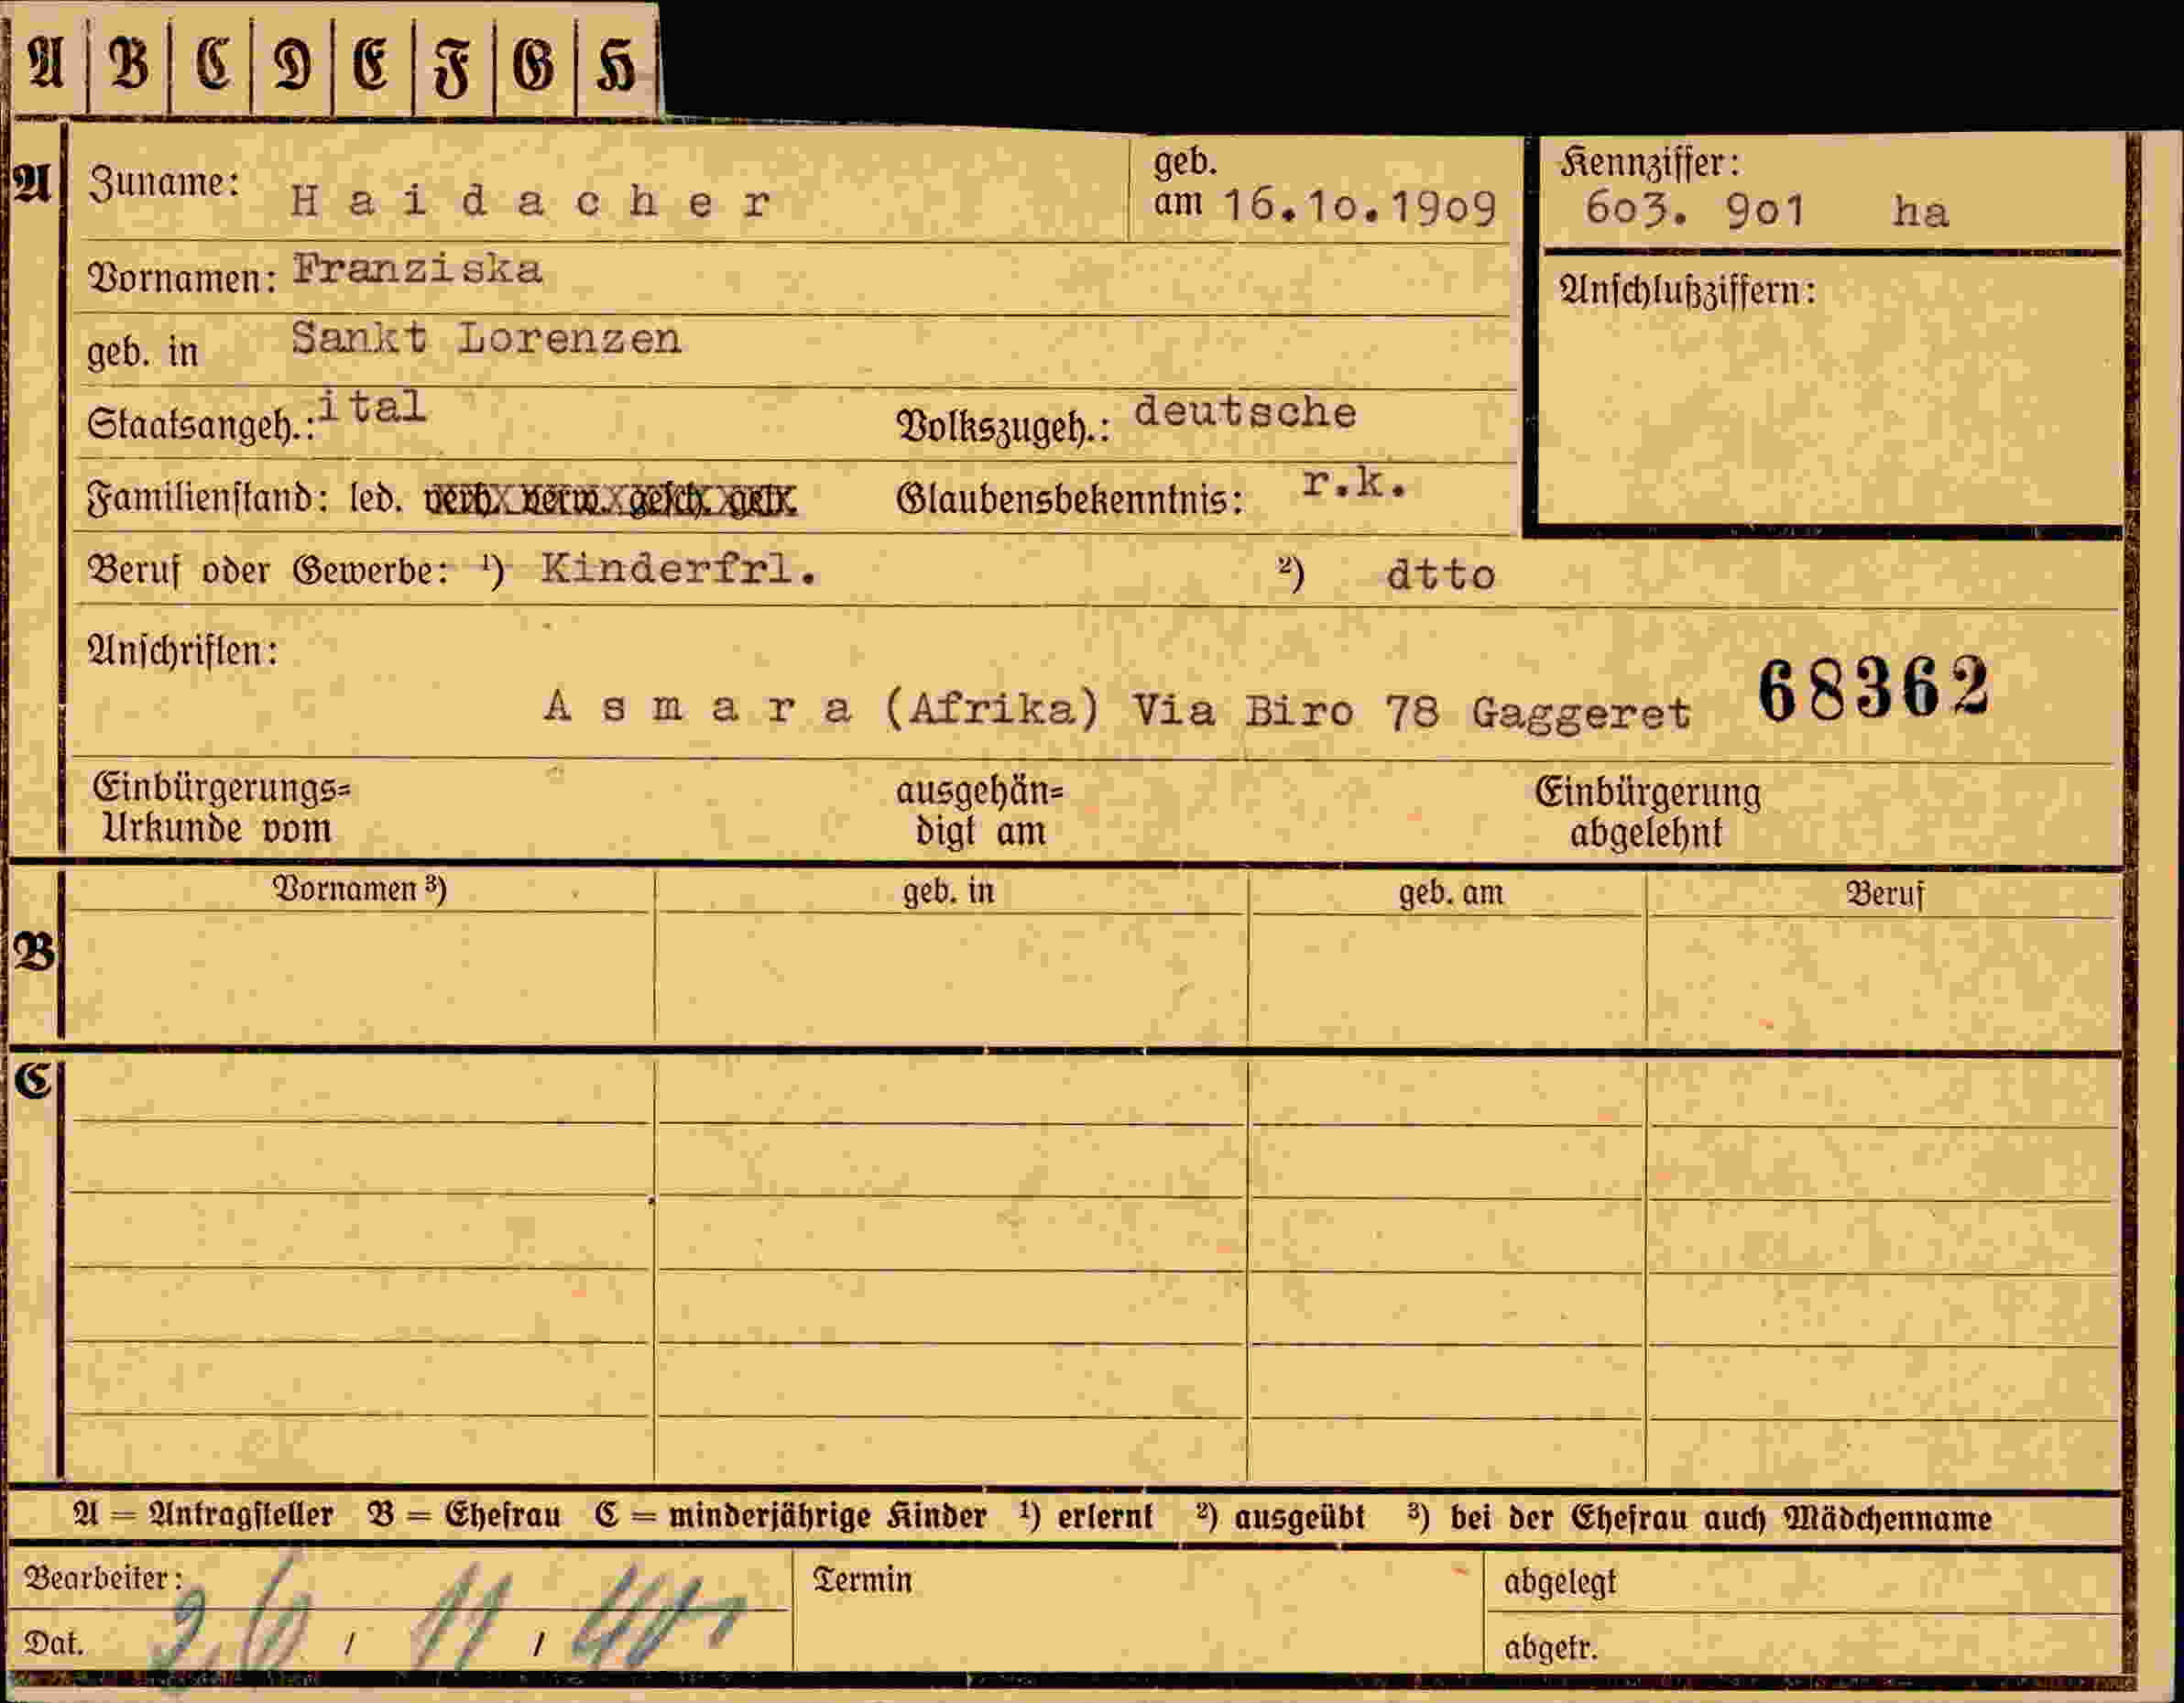 A B C D E F G H
A Zuname: Haidacher geb. am 16.10.1909 Kennziffer: 603. 901 ha
Vornamen: Franziska Anschlußziffern:
geb. in Sankt Lorenzen
Staatsangeh.: ital Volkszugeh.: deutsche
Familienstand: led. verh. verw. gesch. getr. Glaubensbekenntnis: r.k.
Beruf oder Gewerbe: ¹) Kinderfrl. ²) dtto
Anschriften:
Asmara (Afrika) Via Biro 78 Gaggeret 68362
Einbürgerungs= ausgehän= Einbürgerung
Urkunde vom digt am abgelehnt
Vornamen ³) geb. in geb. am Beruf
B
C
A = Antragsteller B = Ehefrau C = minderjährige Kinder ¹) erlernt ²) ausgeübt ³) bei der Ehefrau auch Mädchenname
Bearbeiter: Termin abgelegt
Dat. 26 / 11 / 40 abgetr.